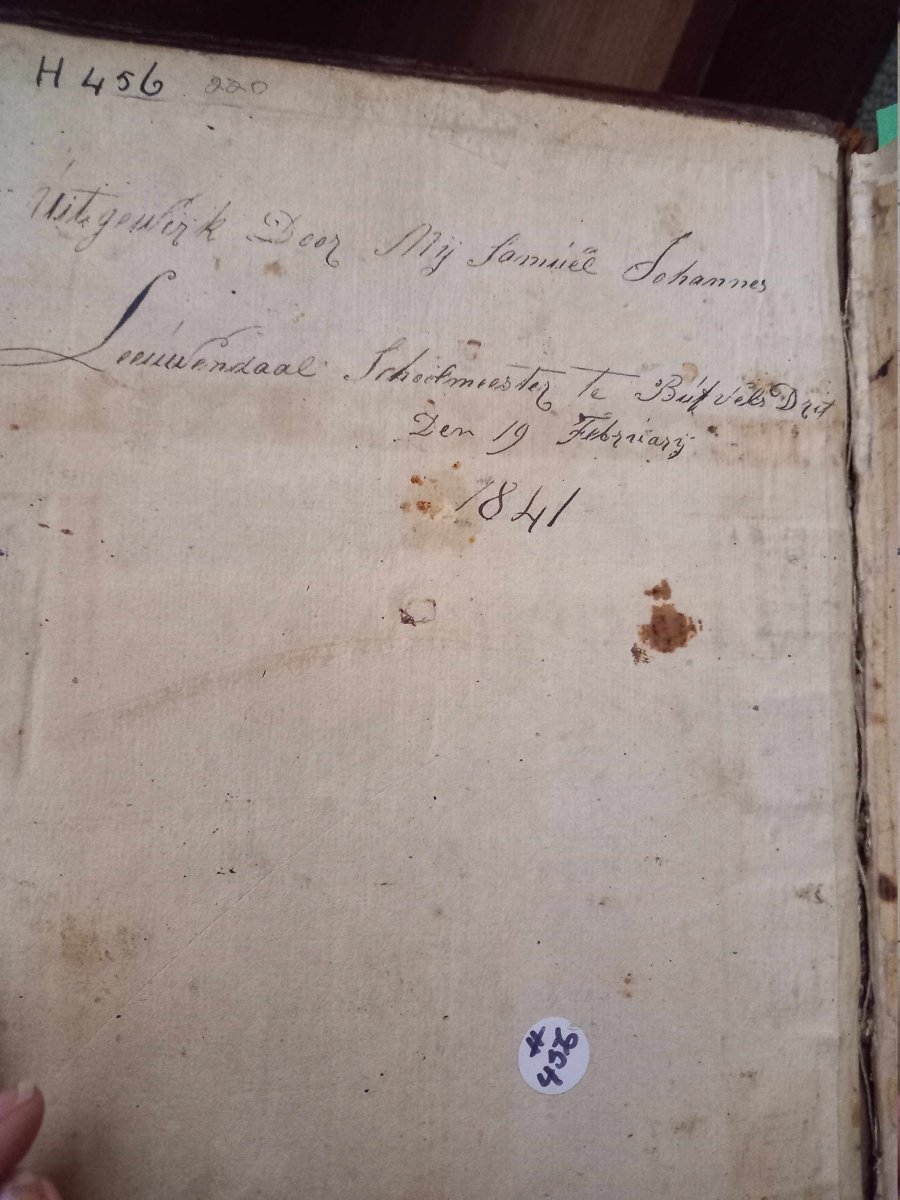 H 456 220
Uitgewerk Door Mij Samúël Johannes
Leeuwendaal Schoolmeester Te
Den 19 Februarij
1841
H
456